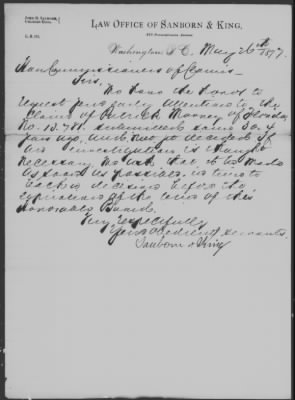 John B. Sanborn,
Charles King.
Law Office of Sanborn & King,
Washington, D.C. May 26th 1877.
Hon Commissioners of Claims
Sirs,
We have the honor to
request your early attention to the
claim of Patrick Mooney of Florida
No. 13.711. submitted some 3 or 4
years ago, and not yet decided. If
any investigation is thought
necessary we ask that it be made
as soon as possible, in time to
reach a decision before the
expiration of the term of this
Honorable Board.
Very respectfully
Your obedient servants
Sanborn & King